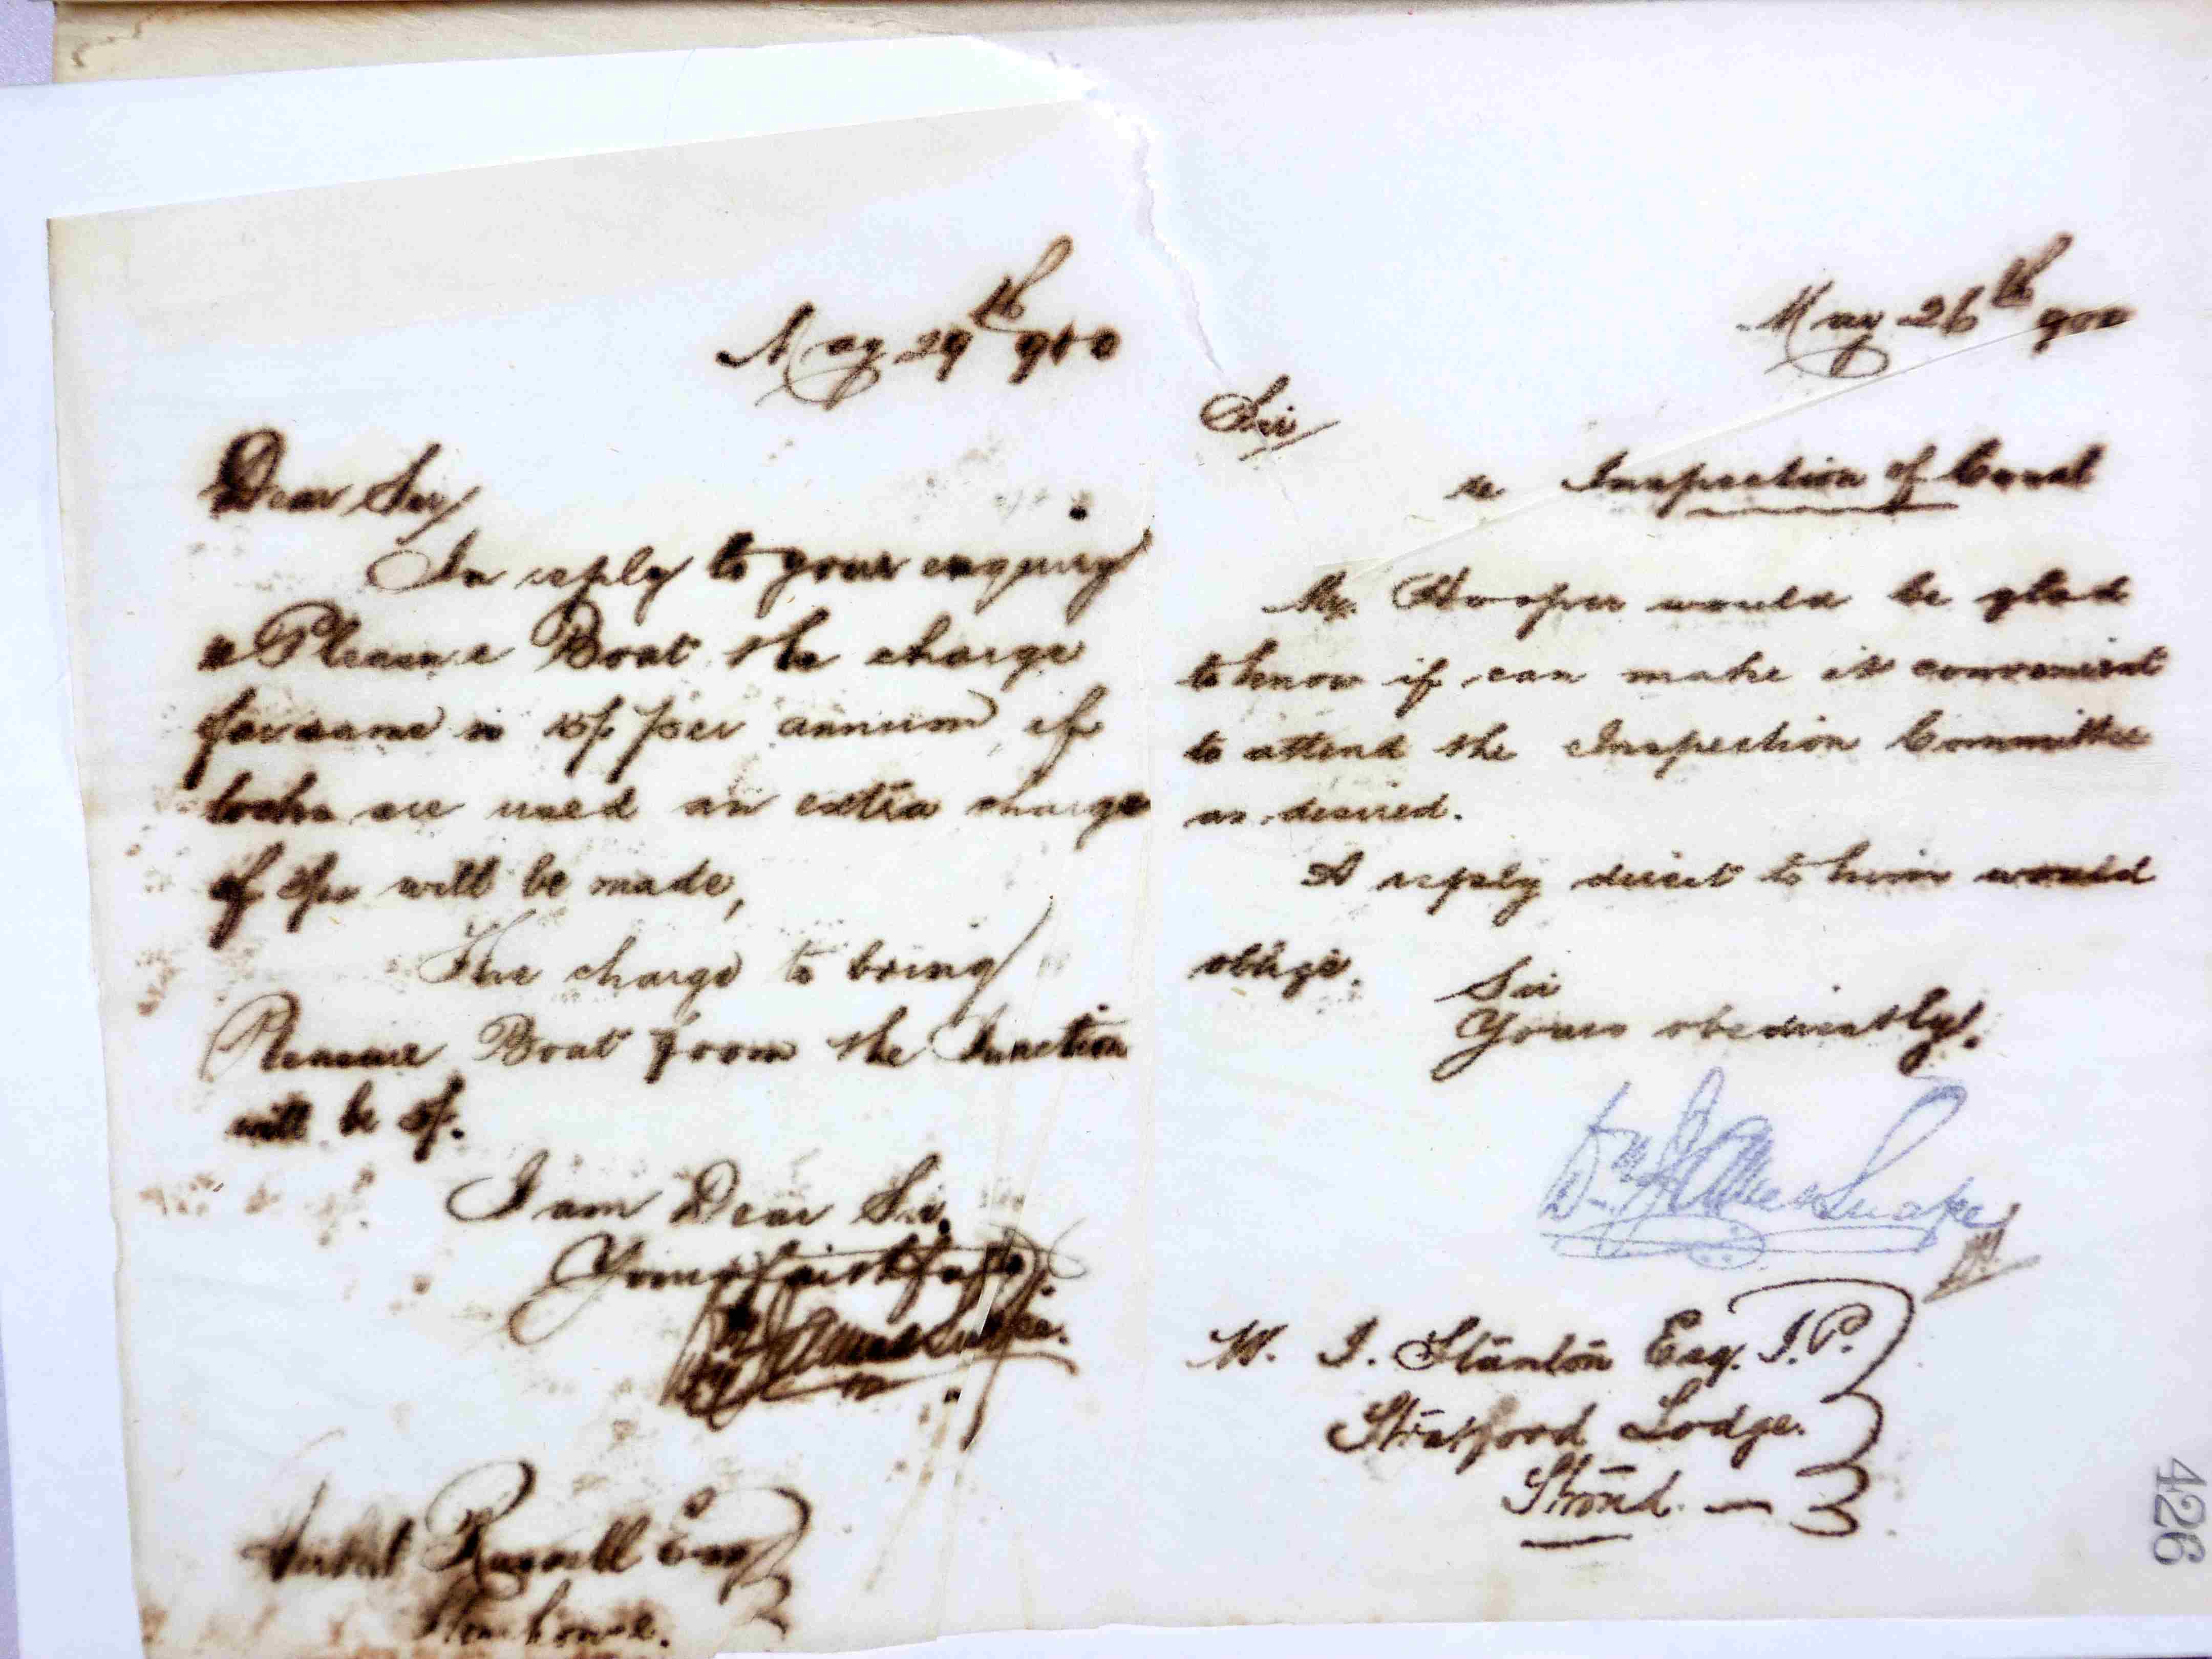 May 29th 900
Dear Sir/
In reply to your enquiry
re Pleasure Boat the charge
for same is per annum, if
locks are used an extra charge
of will be made,
The charge to bring
Pleasure Boat from the Junction
will be 5/-.
I am Dear Sir,
Yours faithfully
Russell Esq
Stonehouse.
May 26th 900
Sir/
re Inspection of Canal
Mr. Hooper would be glad
to know if can make it convenient
to attend the Inspection Committee
as desired.
A reply direct to him would
oblige.
Sir
Yours obediently.
Wm J. Snape
W. J. Stanton Esq. J.P.
Stratford Lodge.
Stroud. —
426